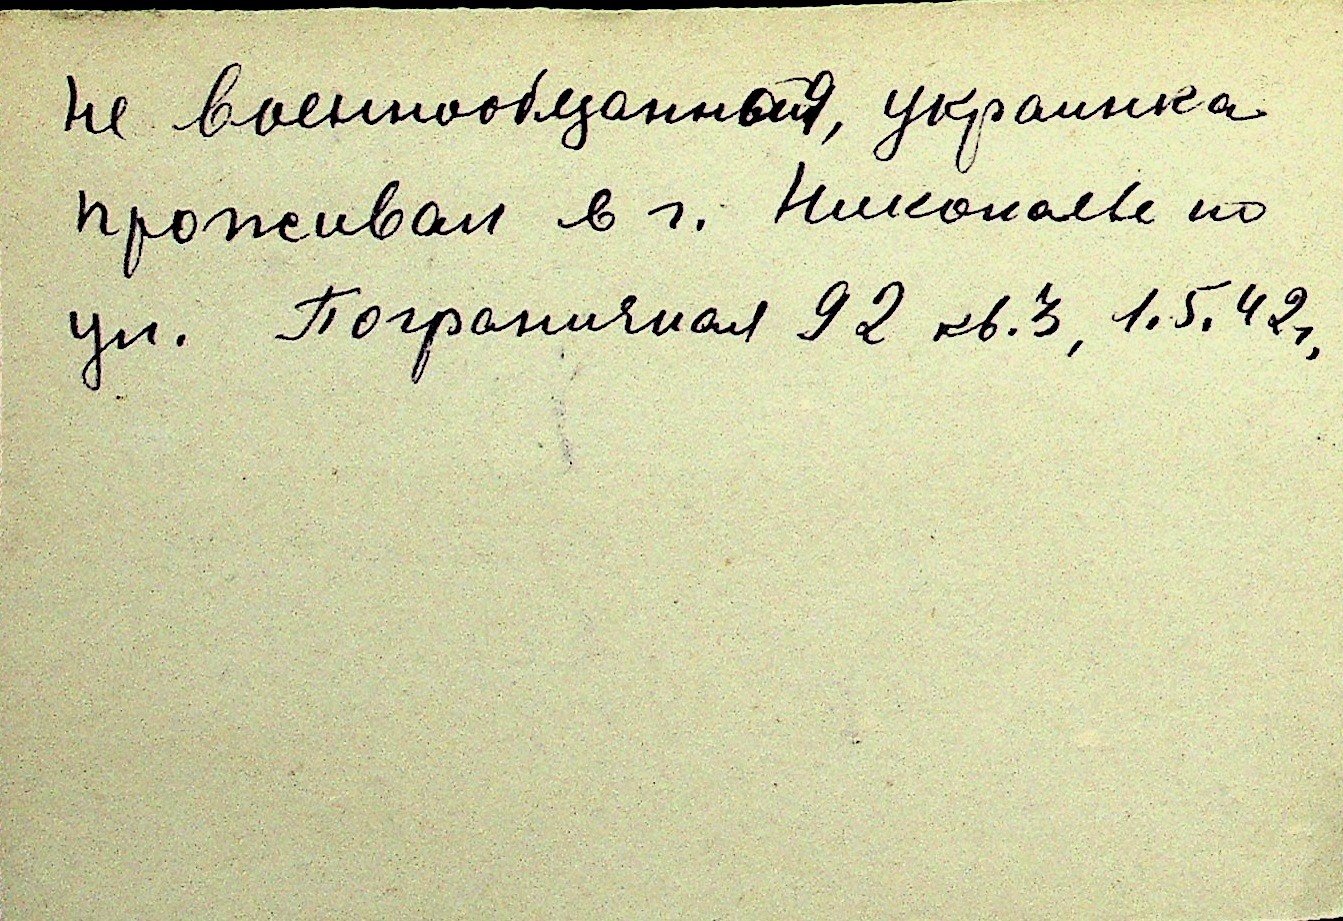 не военнообязанная, украинка
проживал в г. Николаеве по
ул. Пограничная 92 кв. 3, 1.5.42 г,